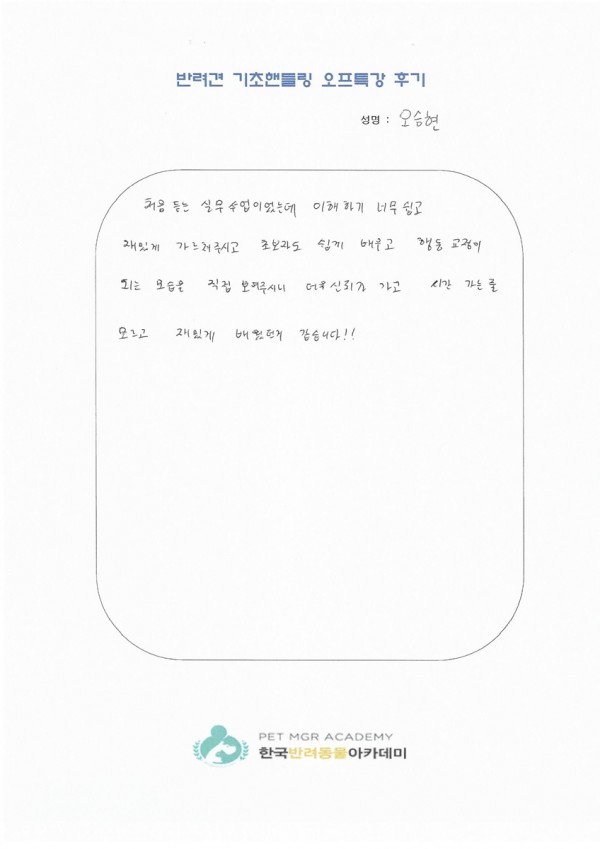 반려견 기초핸들링 오프특강 후기
성명 : 오승현
처음 듣는 실무 수업이었는데 이해하기 너무 쉽고
재밌게 가르쳐주시고 초보자도 쉽게 배우고 행동 교정이
되는 모습을 직접 보여주시니 더욱 신뢰가 가고 시간 가는 줄
모르고 재밌게 배웠던거 같습니다!!
PET MGR ACADEMY
한국반려동물아카데미